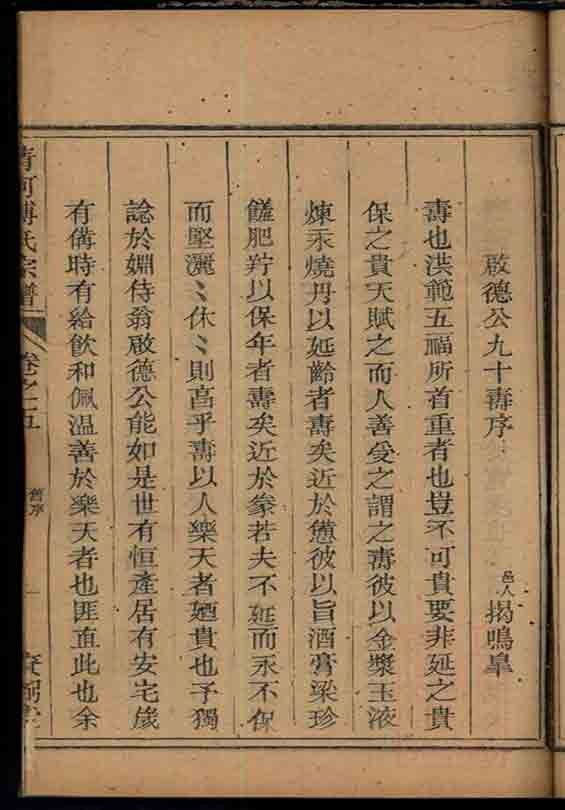 啟德公九十壽序
邑人 揭鳴皐
壽也洪範五福所首重者也豈不可貴要非延之貴
保之貴天賦之而人善受之謂之壽彼以金漿玉液
煉汞燒丹以延齡者壽矣近於愆彼以旨酒膏梁珍
饈肥羜以保年者壽矣近於豢若夫不延而永不保
而堅灑〻休〻則啻乎壽以人樂天者廼貴也予獨
諗於姻侍翁啟德公能如是世有恒產居有安宅歲
有備時有給飲和佩溫善於樂天者也匪直此也余
清河傅氏宗譜
卷之五
舊序
一